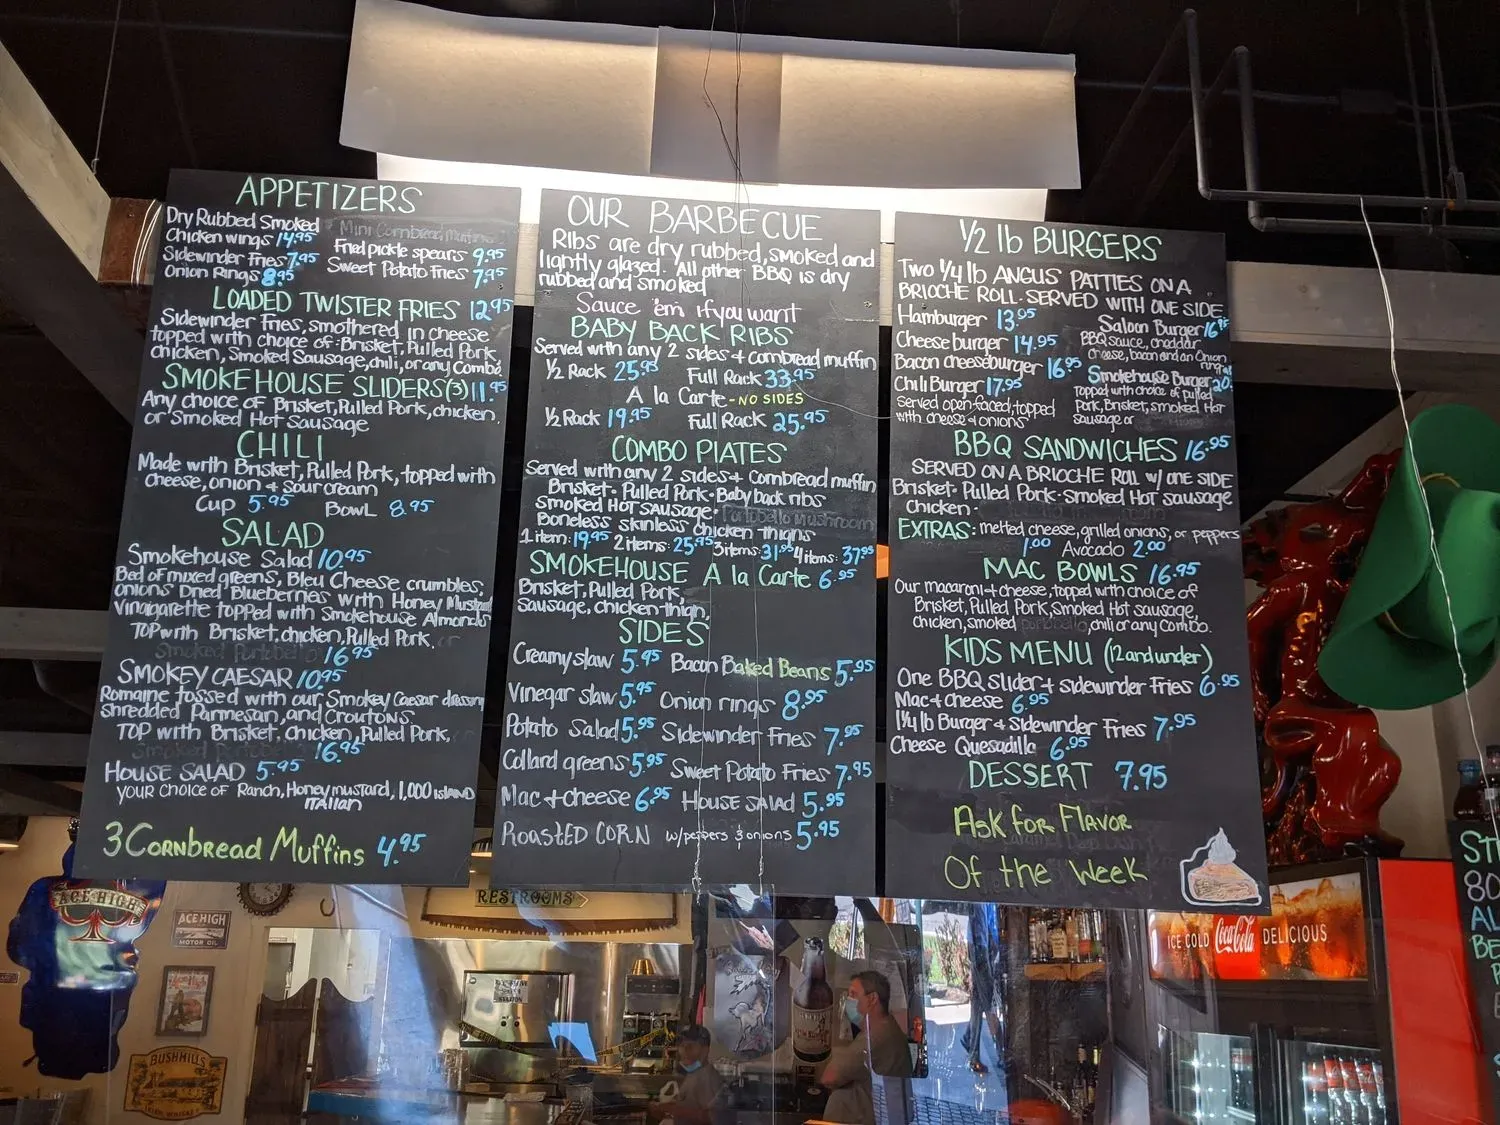 APPETIZERS
Dry Rubbed Smoked
Chicken wings 14.95
Sidewinder Fries 7.95
Onion Rings 8.95
Mini Cornbread muffins
Fried pickle spears 9.95
Sweet Potato Fries 7.95
LOADED TWISTER FRIES 12.95
Sidewinder Fries, smothered in cheese
topped with choice of: Brisket, Pulled Pork,
chicken, Smoked Sausage, chili, or any Combo
SMOKEHOUSE SLIDERS (3) 11.95
Any choice of Brisket, Pulled Pork, chicken,
or Smoked Hot Sausage
CHILI
Made with Brisket, Pulled Pork, topped with
cheese, onion + sour cream
Cup 5.95 Bowl 8.95
SALAD
Smokehouse Salad 10.95
Bed of mixed greens, Bleu Cheese crumbles,
onions Dried Blueberries with Honey Mustard
vinaigarette topped with Smokehouse Almonds
TOP with Brisket, chicken, Pulled Pork, or
Smoked Portobello 16.95
SMOKEY CAESAR 10.95
Romaine tossed with our Smokey Caesar dressing
shredded Parmesan, and Croutons
TOP with Brisket, Chicken, Pulled Pork,
Smoked Portobello 16.95
HOUSE SALAD 5.95
YOUR CHOICE OF Ranch, Honey mustard, 1,000 ISLAND
ITALIAN
3 Cornbread Muffins 4.95
OUR BARBECUE
Ribs are dry rubbed, smoked and
lightly glazed. All other BBQ is dry
rubbed and smoked
Sauce 'em if you want
BABY BACK RIBS
Served with any 2 sides + cornbread muffin
1/2 Rack 25.95 Full Rack 33.95
A la Carte - NO SIDES
1/2 Rack 19.95 Full Rack 25.95
COMBO PLATES
Served with any 2 sides + Cornbread muffin
Brisket · Pulled Pork · Baby back ribs
Smoked Hot Sausage · Portobello mushroom
Boneless skinless chicken thighs
1 item: 19.95 2 items: 25.95 3 items: 31.95 4 items: 37.95
SMOKEHOUSE A la Carte 6.95
Brisket, Pulled Pork,
sausage, chicken-thigh,
SIDES
Creamy slaw 5.95 Bacon Baked Beans 5.95
Vinegar slaw 5.95 Onion rings 8.95
Potato Salad 5.95 Sidewinder Fries 7.95
Collard greens 5.95 Sweet Potato Fries 7.95
Mac + cheese 6.95 HOUSE SALAD 5.95
ROASTED CORN w/peppers & onions 5.95
1/2 lb BURGERS
Two 1/4 lb ANGUS PATTIES ON A
BRIOCHE ROLL. SERVED WITH ONE SIDE
Hamburger 13.95
Cheeseburger 14.95
Bacon cheeseburger 16.95
Chili Burger 17.95
served open-faced, topped
with cheese + onions
Saloon Burger 16.95
BBQ sauce, cheddar
cheese, bacon and an Onion
ring
Smokehouse Burger 20.
Topped with choice of pulled
Pork, Brisket, smoked Hot
sausage or
BBQ SANDWICHES 16.95
SERVED ON A BRIOCHE ROLL W/ ONE SIDE
Brisket · Pulled Pork · Smoked Hot sausage
Chicken ·
EXTRAS: melted cheese, grilled onions, or peppers
1.00 Avocado 2.00
MAC BOWLS 16.95
Our macaroni + cheese, topped with choice of
Brisket, Pulled Pork, Smoked Hot sausage,
chicken, smoked portobello, chili or any combo.
KIDS MENU (12 and under)
One BBQ slider + sidewinder Fries 6.95
Mac + cheese 6.95
1/4 lb Burger + Sidewinder Fries 7.95
Cheese Quesadilla 6.95
DESSERT 7.95
Ask for Flavor
Of the Week
ACE HIGH
ACE HIGH
MOTOR OIL
BUSHMILLS
RESTROOMS
ICE COLD Coca-Cola DELICIOUS